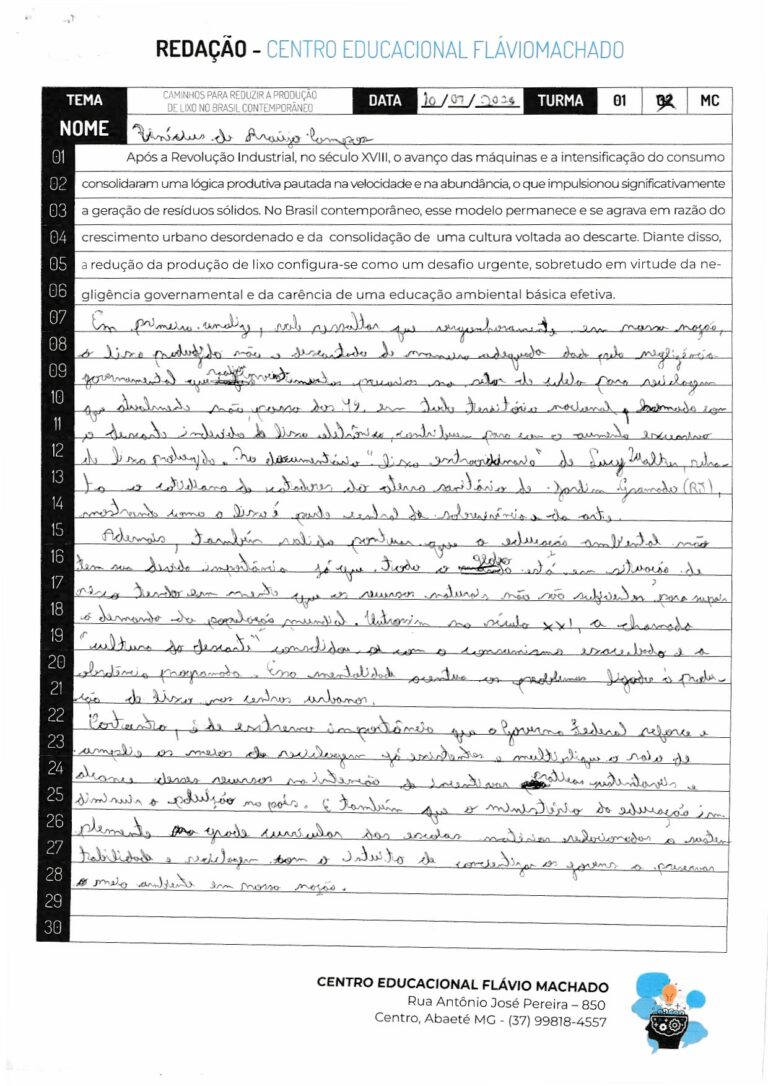 REDAÇÃO - CENTRO EDUCACIONAL FLÁVIOMACHADO
TEMA
CAMINHOS PARA REDUZIR A PRODUÇÃO
DE LIXO NO BRASIL CONTEMPORÂNEO
DATA 10/07/2026 TURMA 01 02 MC
NOME Vinícius de Araújo Campos
01 Após a Revolução Industrial, no século XVIII, o avanço das máquinas e a intensificação do consumo
02 consolidaram uma lógica produtiva pautada na velocidade e na abundância, o que impulsionou significativamente
03 a geração de resíduos sólidos. No Brasil contemporâneo, esse modelo permanece e se agrava em razão do
04 crescimento urbano desordenado e da consolidação de uma cultura voltada ao descarte. Diante disso,
05 a redução da produção de lixo configura-se como um desafio urgente, sobretudo em virtude da ne-
06 gligência governamental e da carência de uma educação ambiental básica efetiva.
07 Em primeira analize, vale ressaltar que vergonhosamente em nossa nação,
08 o lixo produzido não e descartado de maneira adequada dado pela negligência
09 governamental que investimentos precarios no setor de coleta para reciclagem
10 que atualmente não passa dos 4%, em todo território nacional, somado com
11 o descarte indevido de lixo eletrônico, contribuem para com o aumento excessivo
12 de lixo produzido. No documentário "lixo extraordinário" de Lucy Walker, retra-
13 ta o cotidiano de catadores do aterro sanitário de Jardim Gramacho (RJ),
14 mostrando como o lixo é parte central da sobrevivência e da arte.
15 Ademais, também valido pontuar que a educação ambiental não
16 tem sua devida importância já que todo o globo está em situação de
17 risco tendo em mente que os recursos naturais não são suficientes para supri
18 a demanda da população mundial. Outrossim no século XXI, a chamada
19 "cultura do descarte" consolidou se com o consumismo exacerbado e a
20 obsolência programada. Essa mentalidade acentua os problemas ligados à produ-
21 ção de lixo nos centros urbanos.
22 Portanto, é de extrema importância que o Governo Federal reforce e
23 amplie os meios de reciclagem já existentes e multiplique o raio de
24 alcance desses recursos na intenção de incentivar praticas sustentaveis e
25 diminuir a poluição no país. E também que o ministério da educação im
26 plemente na grade curricular das escolas matérias relacionadas a susten
27 tabilidade e reciclagem com o intuito de concientizar os jovens a preservar
28 o meio ambiente em nossa nação.
29
30
CENTRO EDUCACIONAL FLÁVIO MACHADO
Rua Antônio José Pereira – 850
Centro, Abaeté MG - (37) 99818-4557